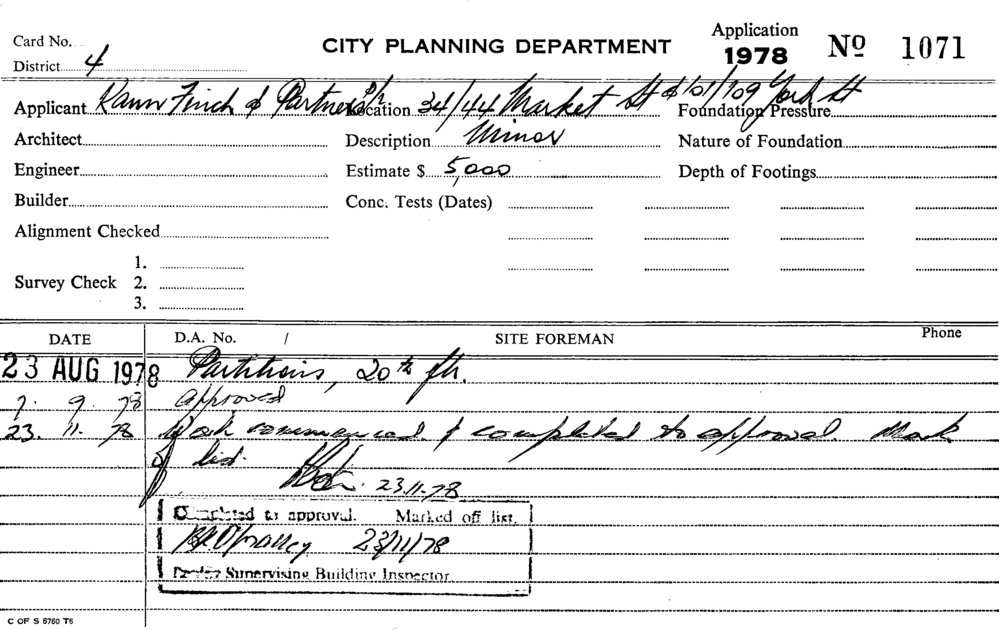 Card No.
District 4
CITY PLANNING DEPARTMENT
Application
1978
No 1071
Applicant Rann Finch & Partners P/L Location 34/44 Market St & 101/109 York St Foundation Pressure
Architect Description Minor Nature of Foundation
Engineer Estimate $ 5,000 Depth of Footings
Builder Conc. Tests (Dates)
Alignment Checked
Survey Check 1.
2.
3.
DATE D.A. No. / SITE FOREMAN Phone
23 AUG 1978 Partitions, 20th flr.
7. 9. 78 approved
23. 11. 78 Work commenced & completed to approval Mark
off list.
23.11.78
Completed to approval. Marked off list.
23/11/78
Supervising Building Inspector
C OF S 6760 T6